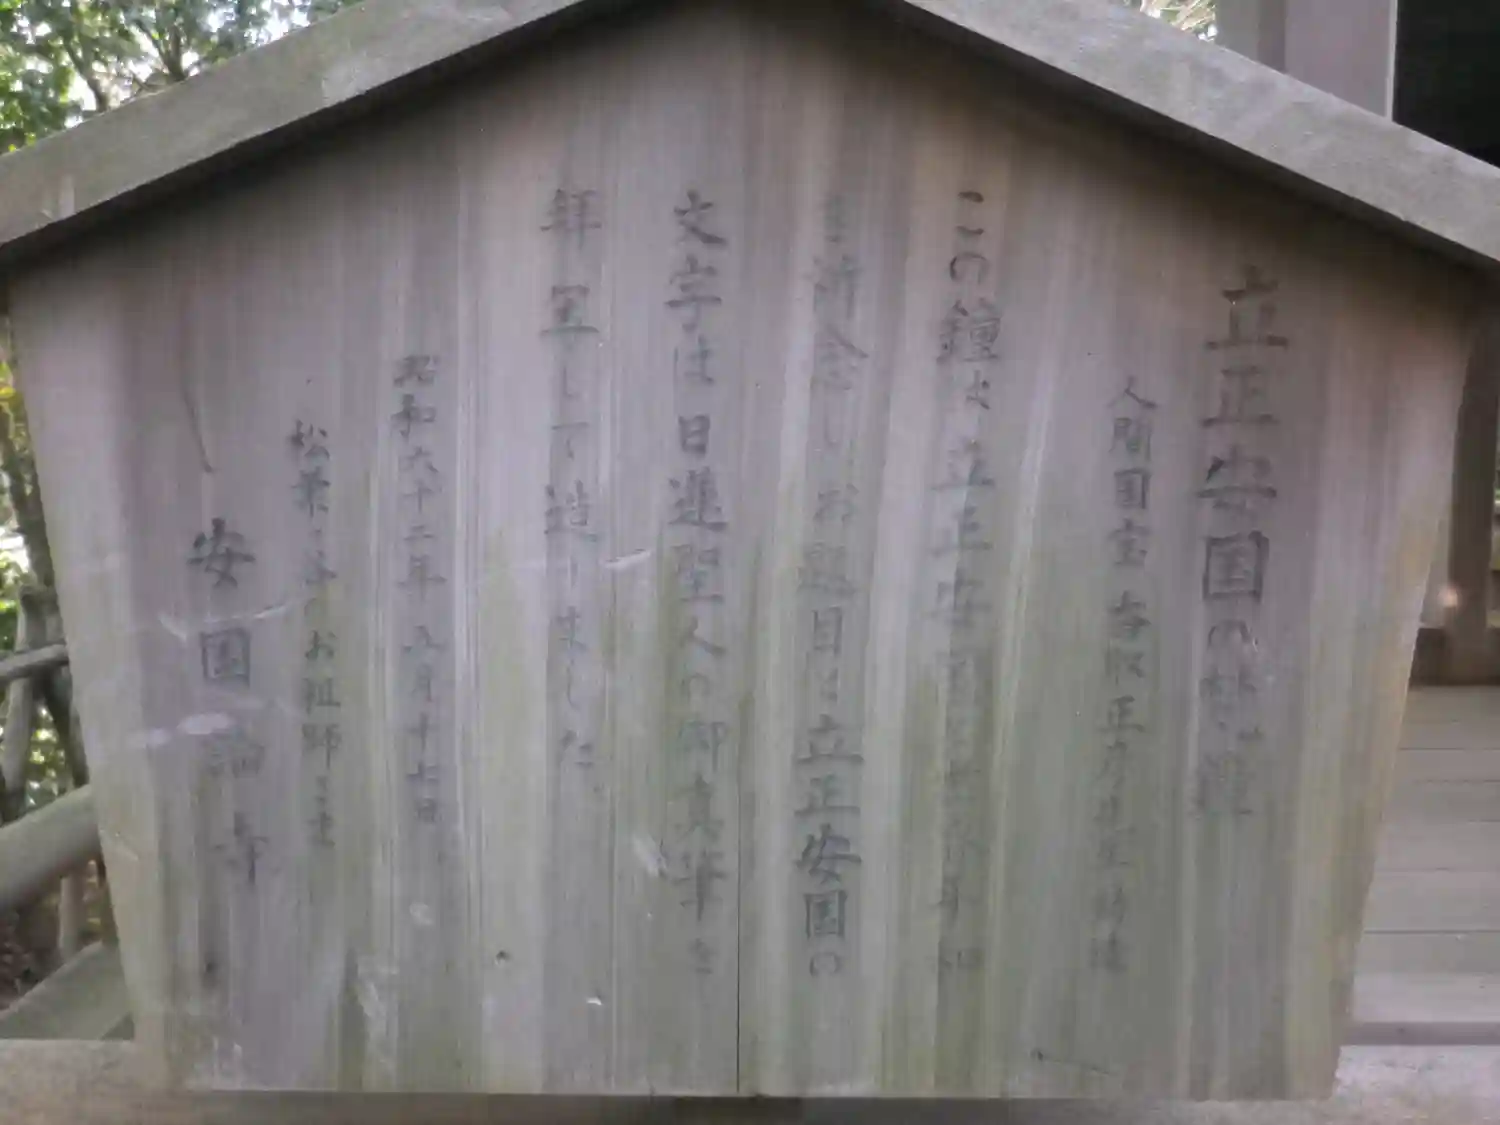 立正安国の梵鐘
人間国宝 香取正彦先生鋳造
この鐘は立正安国と世界平和
を祈念しお題目と立正安国の
文字は日蓮聖人の御真筆を
拝写して造りました
昭和六十二年 五月十七日
松葉ヶ谷のお祖師さま
安国論寺